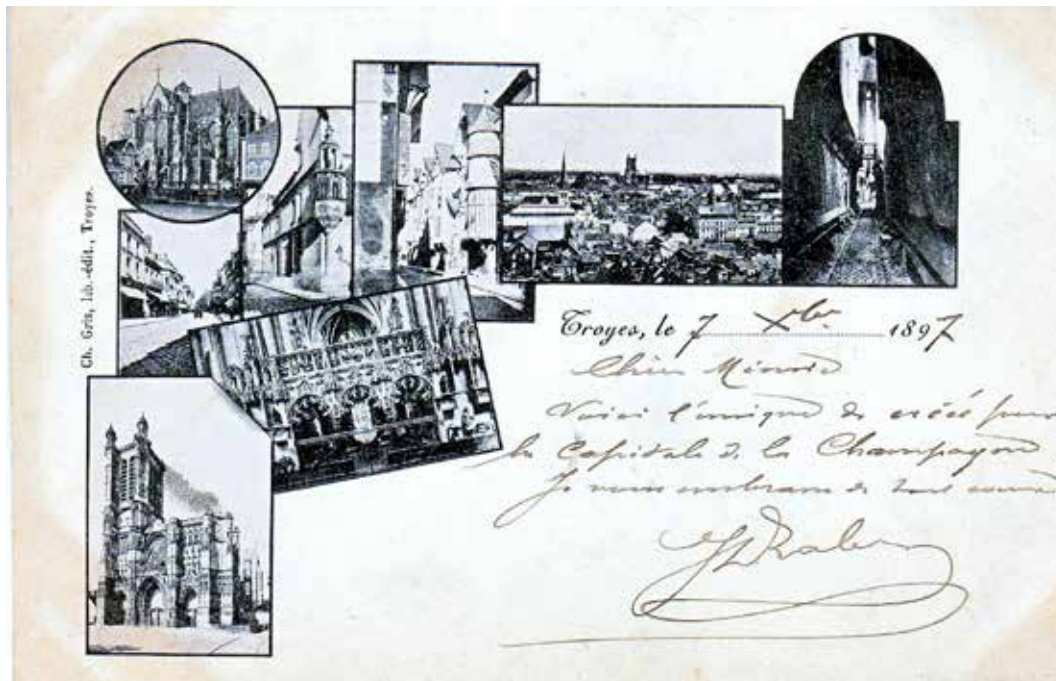 Ch. Gris, lib.-édit., Troyes.
Troyes, le 7 Xbre 1897
Voici l'unique de créée pour
la Capitale de la Champagne
Je vous embrasse de tout coeur